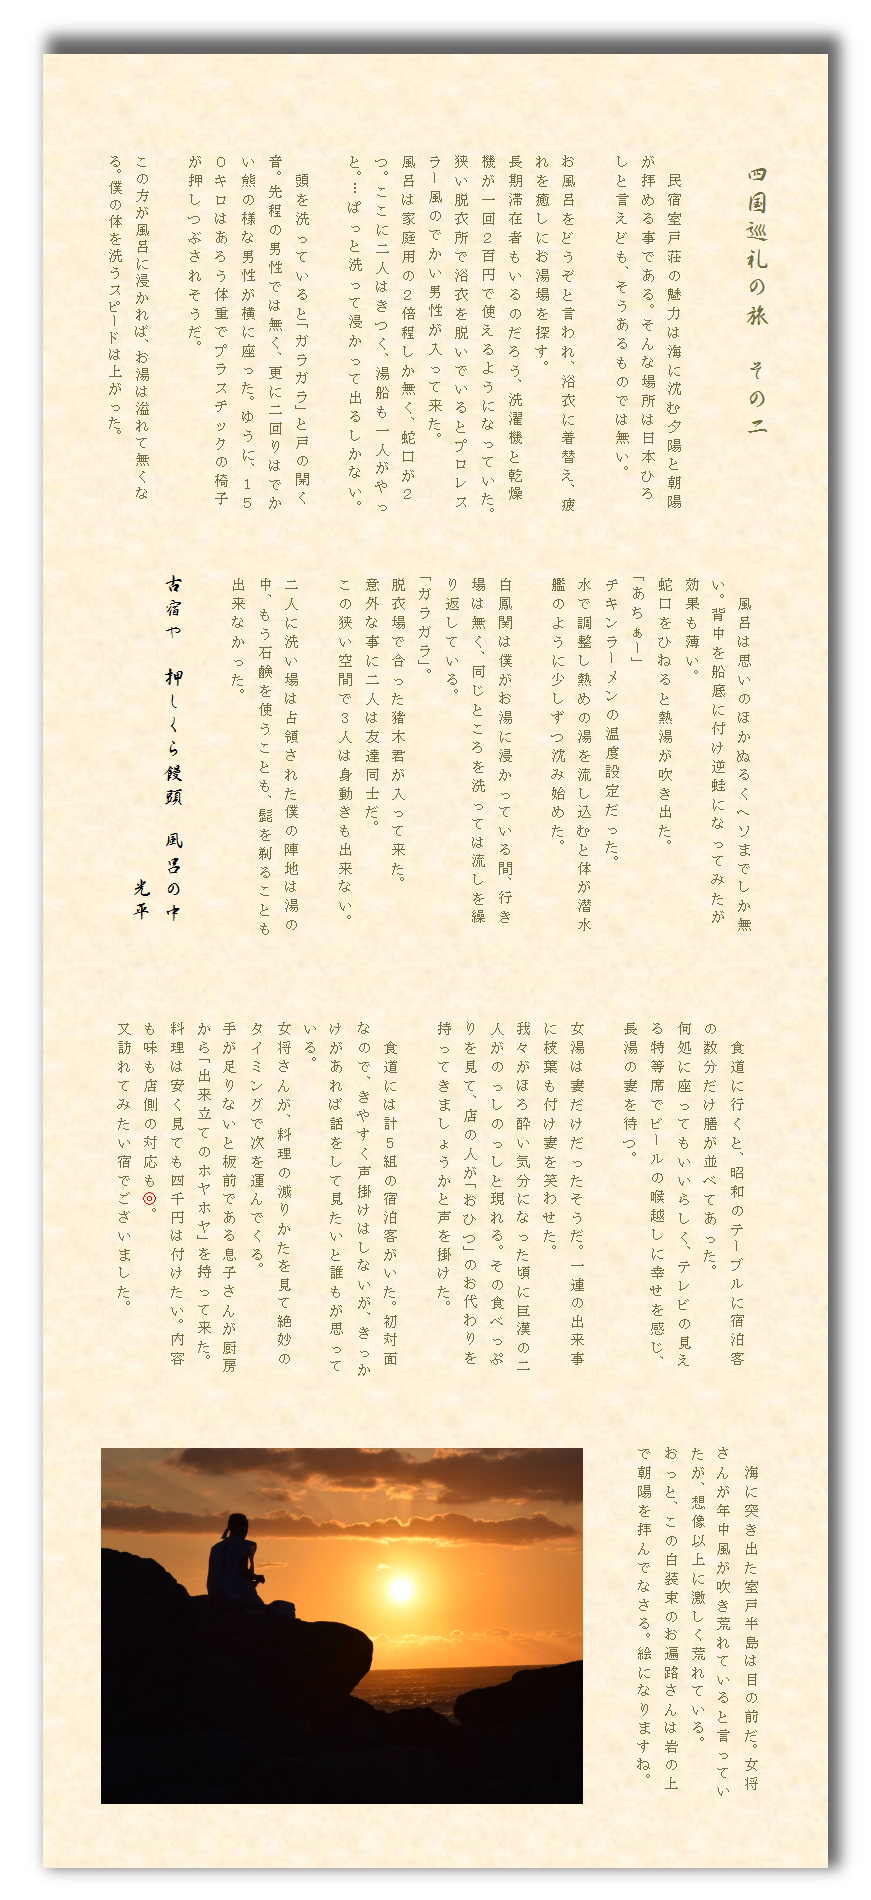 四国巡礼の旅　その二
　民宿室戸荘の魅力は海に沈む夕陽と朝陽
が拝める事である。そんな場所は日本ひろ
しと言えども、そうあるものでは無い。
お風呂をどうぞと言われ、浴衣に着替え、疲
れを癒しにお湯場を探す。
長期滞在者もいるのだろう、洗濯機と乾燥
機が一回２百円で使えるようになっていた。
狭い脱衣所で浴衣を脱いでいるとプロレス
ラー風のでかい男性が入って来た。
風呂は家庭用の２倍程しか無く、蛇口が２
つ。ここに二人はきつく、湯船も一人がやっ
と。…ぱっと洗って浸かって出るしかない。
　頭を洗っていると「ガラガラ」と戸の開く
音。先程の男性では無く、更に二回りはでか
い熊の様な男性が横に座った。ゆうに、１５
０キロはあろう体重でプラスチックの椅子
が押しつぶされそうだ。
この方が風呂に浸かれば、お湯は溢れて無くな
る。僕の体を洗うスピードは上がった。
　風呂は思いのほかぬるくヘソまでしか無
い。背中を船底に付け逆蛙になってみたが
効果も薄い。
蛇口をひねると熱湯が吹き出た。
「あちぁー」
チキンラーメンの温度設定だった。
水で調整し熱めの湯を流し込むと体が潜水
艦のように少しずつ沈み始めた。
白鳳関は僕がお湯に浸かっている間、行き
場は無く、同じところを洗っては流しを繰
り返している。
「ガラガラ」。
脱衣場で合った猪木君が入って来た。
意外な事に二人は友達同士だ。
この狭い空間で３人は身動きも出来ない。
二人に洗い場は占領された僕の陣地は湯の
中、もう石鹸を使うことも、髭を剃ることも
出来なかった。
古宿や　押しくら饅頭　風呂の中
光平
　食道に行くと、昭和のテーブルに宿泊客
の数分だけ膳が並べてあった。
何処に座ってもいいらしく、テレビの見え
る特等席でビールの喉越しに幸せを感じ、
長湯の妻を待つ。
女湯は妻だけだったそうだ。一連の出来事
に枝葉も付け妻を笑わせた。
我々がほろ酔い気分になった頃に巨漢の二
人がのっしのっしと現れる。その食べっぷ
りを見て、店の人が「おひつ」のお代わりを
持ってきましょうかと声を掛けた。
　食道には計５組の宿泊客がいた。初対面
なので、きやすく声掛けはしないが、きっか
けがあれば話をして見たいと誰もが思って
いる。
女将さんが、料理の減りかたを見て絶妙の
タイミングで次を運んでくる。
手が足りないと板前である息子さんが厨房
から「出来立てのホヤホヤ」を持って来た。
料理は安く見ても四千円は付けたい。内容
も味も店側の対応も◎。
又訪れてみたい宿でございました。
　海に突き出た室戸半島は目の前だ。女将
さんが年中風が吹き荒れていると言ってい
たが、想像以上に激しく荒れている。
おっと、この白装束のお遍路さんは岩の上
で朝陽を拝んでなさる。絵になりますね。